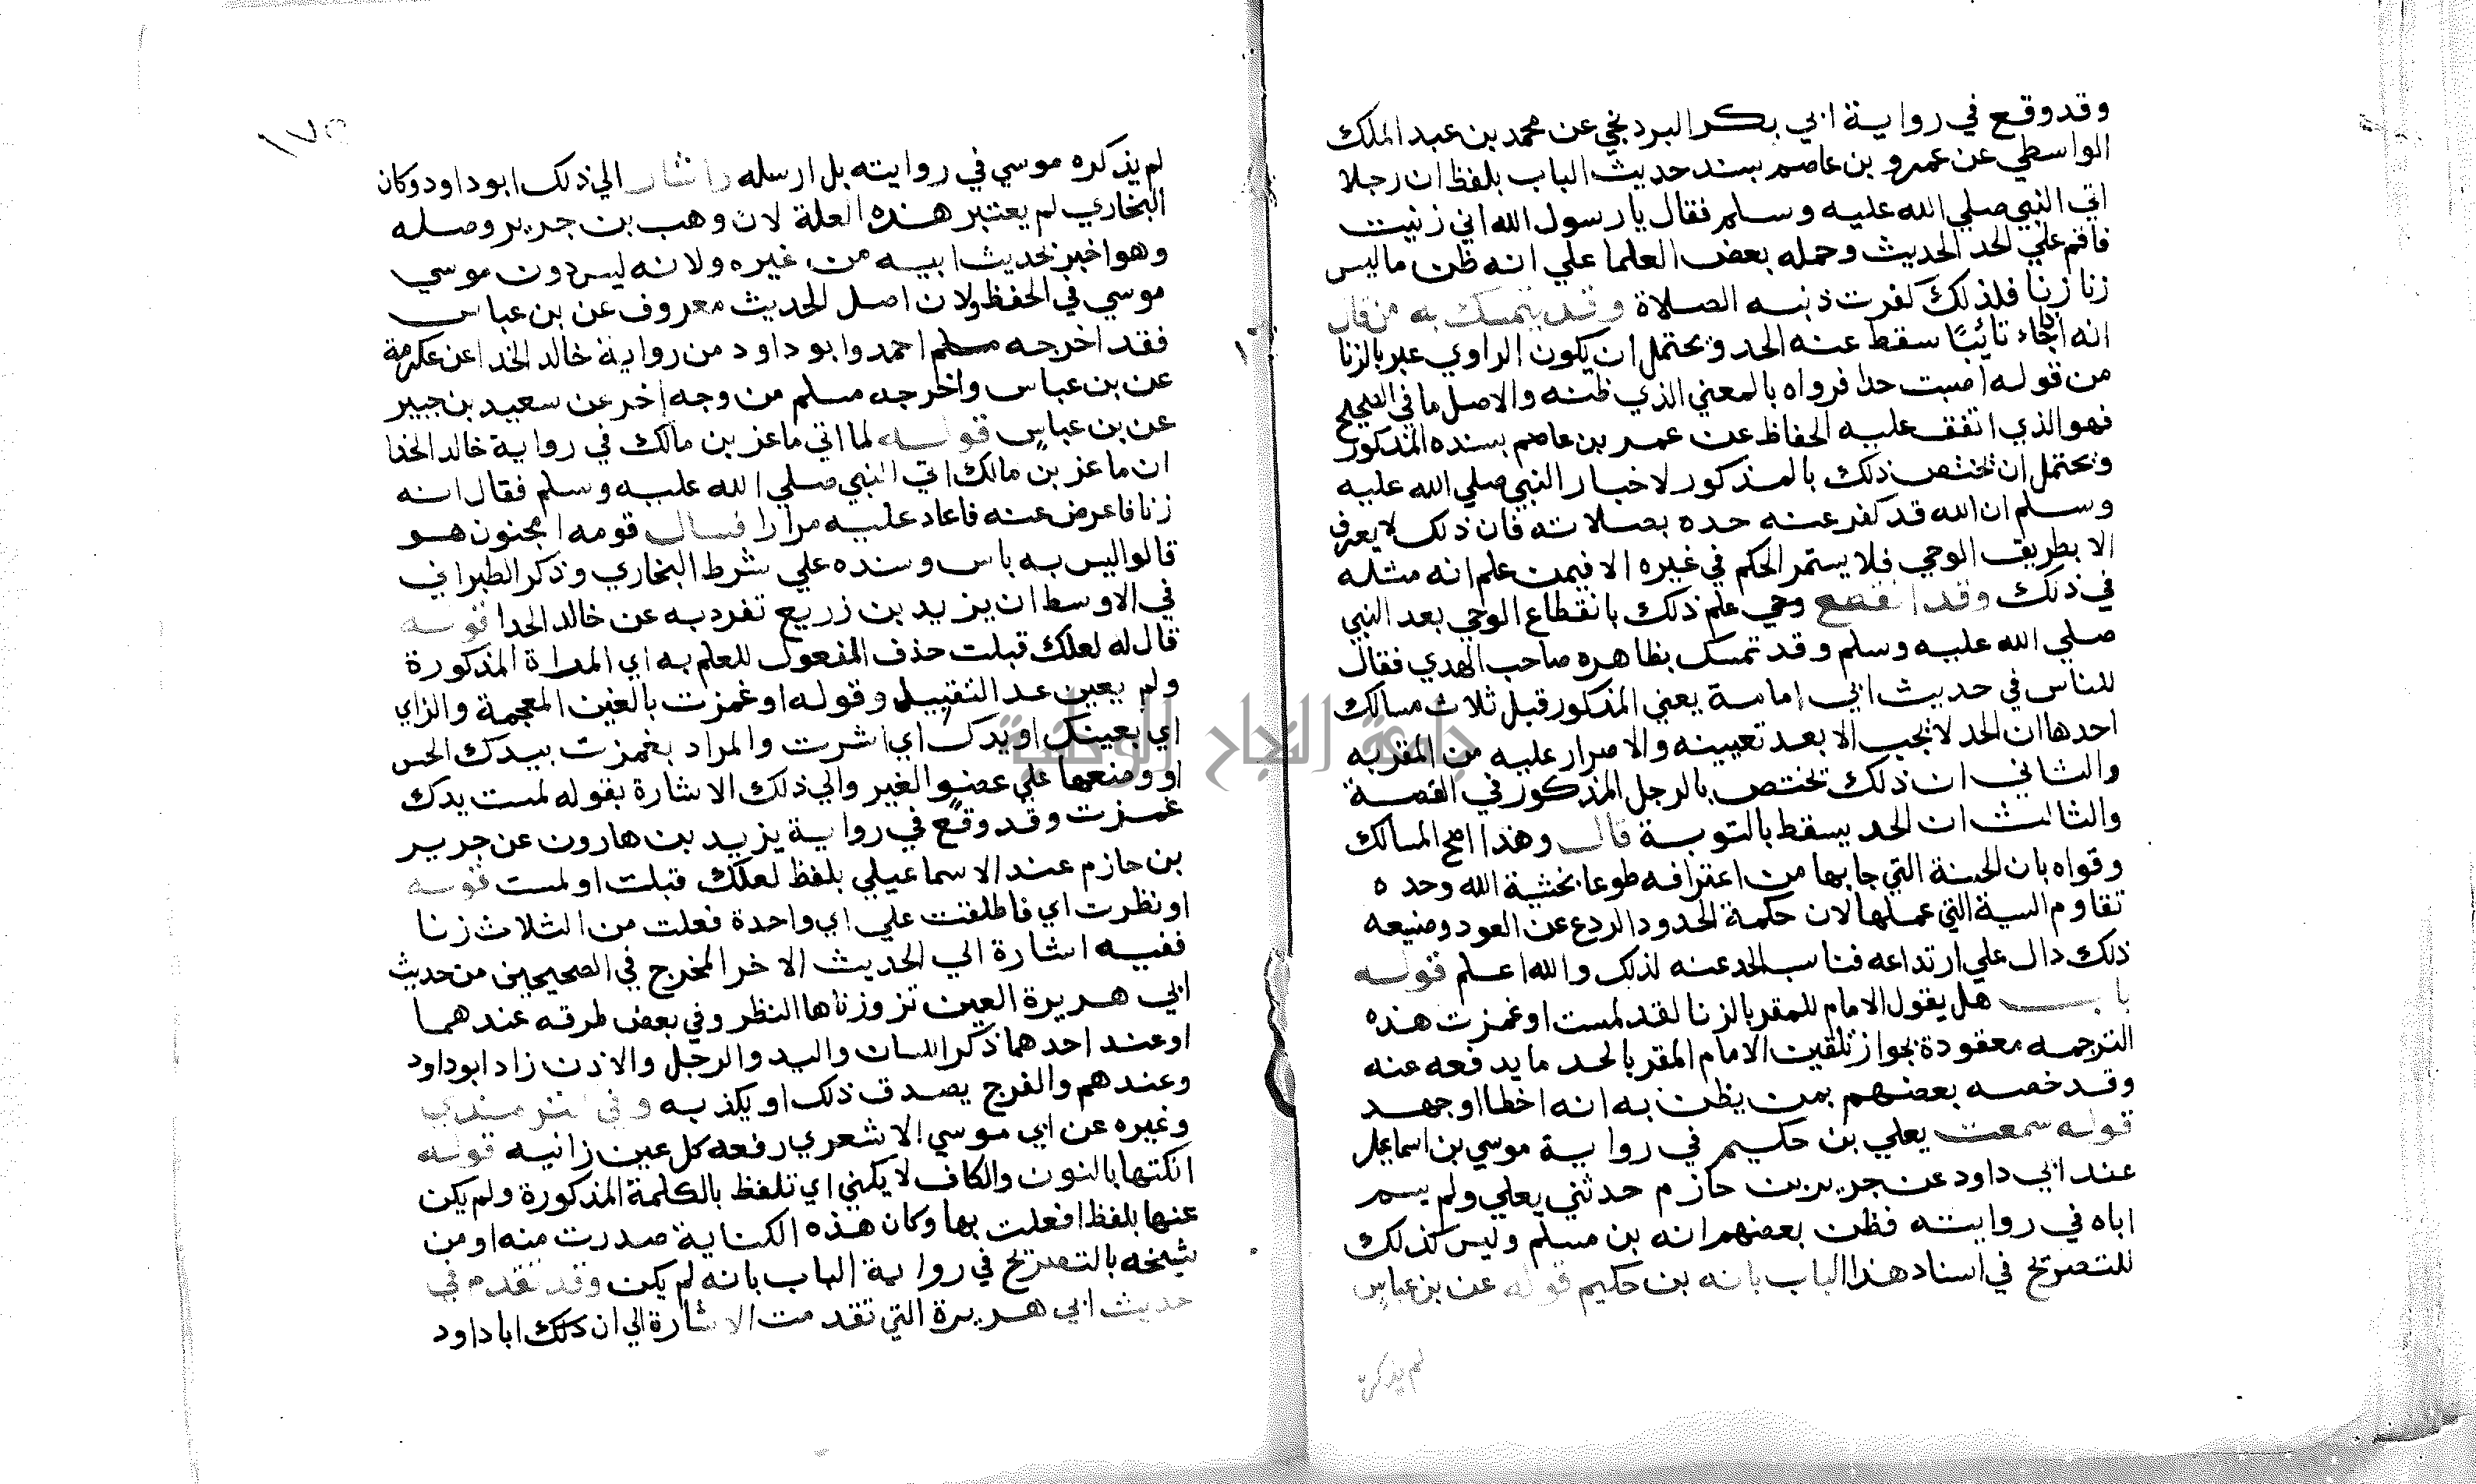 وقد وقع في رواية ابي بكر البرديجي عن محمد بن عبد الملك
الواسطي عن عمرو بن عاصم بسند حديث الباب بلفظ ان رجلا
اتي النبي صلي الله عليه وسلم فقال يا رسول الله اني زنيت
فاقم علي الحد الحديث وحمله بعض العلما علي انه ظن ماليس
زنا زنا فلذلك كفرت ذنبه الصلاة وقد يتمسك به من قال
انه اذا جاء تائبًا سقط عنه الحد ويحتمل ان يكون الراوي عبر بالزنا
من قوله اصبت حدا فرواه بالمعني الذي ظنه والاصل ما في الصحيح
فهو الذي اتفق عليه الحفاظ عن عمر بن عاصم بسنده المذكور
ويحتمل ان تختص ذلك بالمذكور لاخبار النبي صلي الله عليه
وسلم ان الله قد كفر عنه حده بصلاته فان ذلك لا يعرف
الا بطريق الوحي فلا يستمر الحكم في غيره الا فيمن علم انه مثله
في ذلك وقد انقطع وحي علم ذلك بانقطاع الوحي بعد النبي
صلي الله عليه وسلم وقد تمسك بظاهره صاحب الهدي فقال
للناس في حديث ابي امامة يعني المذكور قبل ثلاث مسالك
احدها ان الحد لا يجب الا بعد تعيينه والاصرار عليه من المقر به
والثاني ان ذلك تختص بالرجل المذكور في القصة
والثالث ان الحد يسقط بالتوبة قال وهذا اصح المسالك
وقواه بان الحسنة التي جا بها من اعترافه طوعا بخشية الله وحده
تقاوم السية التي عملها لان حكمة الحدود الردع عن العود وصنيعه
ذلك دال علي ارتداعه فناسب الحد عنه لذلك والله اعلم قوله
باب هل يقول الامام للمقر بالزنا لقد لمست او غمزت هذه
الترجمه معقودة بجواز تلقين الامام المقر بالحد ما يدفعه عنه
وقد خصه بعضهم بمن يظن به انه اخطا اوجهد
قوله سمعت يعلي بن حكيم في رواية موسي بن اسماعيل
عند ابي داود عن جرير بن حازم حدثني يعلي ولم يسم
اباه في روايته فظن بعضهم انه بن مسلم وليس كذلك
للتصريح في اسناد هذا الباب بانه بن حكيم قوله عن بن عباس
لم يذكره
١٧٥
لم يذكره موسي في روايته بل ارسله واشار الي ذلك ابو داود وكان
البخاري لم يعتبر هذه العلة لان وهب بن جرير وصله
وهو اخبر بحديث ابيه من غيره ولانه ليس دون موسي
موسي في الحفظ ولان اصل الحديث معروف عن بن عباس
فقد اخرجه مسلم احمد وابو داود من رواية خالد الحذا عن عكرمة
عن بن عباس واخرجه مسلم من وجه اخر عن سعيد بن جبير
عن بن عباس قوله لما اتي ماعز بن مالك في رواية خالد الحذا
ان ماعز بن مالك اتي النبي صلي الله عليه وسلم فقال انه
زنا فاعرض عنه فاعاد عليه مرارا فسال قومه امجنون هو
قالوا ليس به باس وسنده علي شرط البخاري وذكر الطبراني
في الاوسط ان يزيد بن زريع تفرد به عن خالد الحدا قوله
قال له لعلك قبلت حذف المفعول للعلم به اي المراة المذكورة
ولم يعين عدا التقبيل وقوله او غمزت بالغين المعجمة والزاي
اي بعينك او يدك اي اشرت والمراد بغمزت بيدك الحس
او وضعها علي عضو الغير والي ذلك الاشارة بقوله لمست يدك
غمزت وقد وقع في رواية يزيد بن هارون عن جرير
بن حازم عند الاسماعيلي بلفظ لعلك قبلت او لمست قوله
او نظرت اي فاطلقت علي اي واحدة فعلت من الثلاث زنا
ففيه اشارة الي الحديث الاخر المخرج في الصحيحين من حديث
ابي هريرة العين تز وزناها النظر وفي بعض طرقه عندهما
او عند احدهما ذكر اللسان واليد والرجل والاذن زاد ابو داود
وعندهم والفرج يصدق ذلك او يكذبه وفي الترمذي
وغيره عن ابي موسي الاشعري رفعه كل عين زانيه قوله
انكتها بالنون والكاف لا يكني اي تلفظ بالكلمة المذكورة ولم يكن
عنها بلفظ افعلت بها وكان هذه الكناية صدرت منه او من
شيخه بالتصريح في رواية الباب بانه لم يكن وقد تقدم في
حديث ابي هريرة التي تقدمت الاشارة الي ان ذلك ابا داود
جامعة النجاح الوطنية